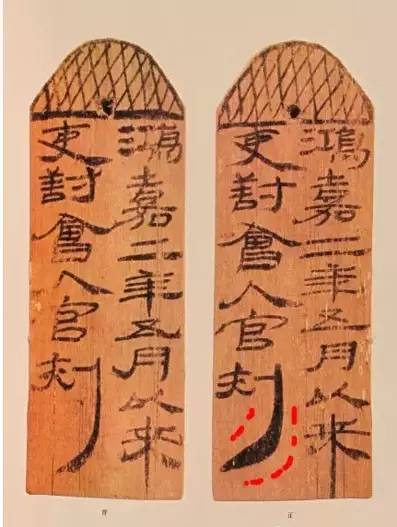 鴻嘉二年五月以来
吏對會入官刺
正
鴻嘉二年五月以来
吏對會入官刺
背